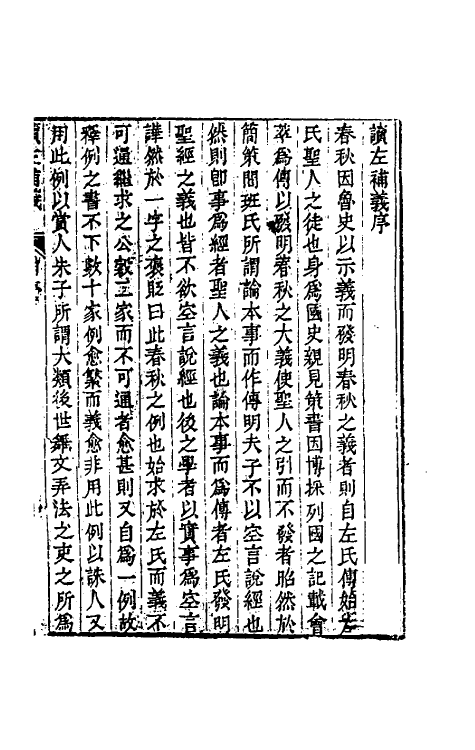 讀左補義序
春秋因魯史以示義而發明春秋之義者則自左氏傳始左
氏聖人之徒也身為國史親見策書因博採列國之記載會
萃為傳以發明春秋之大義使聖人之引而不發者胎然於
簡策間班氏所謂論本事而作傳明夫子不以空言說經也
然則卽事為經者聖人之義也論本事而為傳者左氏發明
聖經之義也皆不欲空言說經也後之學者以實事為空言
譁然於一字之褒貶曰此春秋之例也始求於左氏而義不
可通繼求之公穀二家而不可通者愈甚則又自為一例故
釋例之書不下數十家例愈繁而義愈非用此例以誅人又
用此例以賞人朱子所謂大類後世舞文弄法之吏之所為
讀左補義